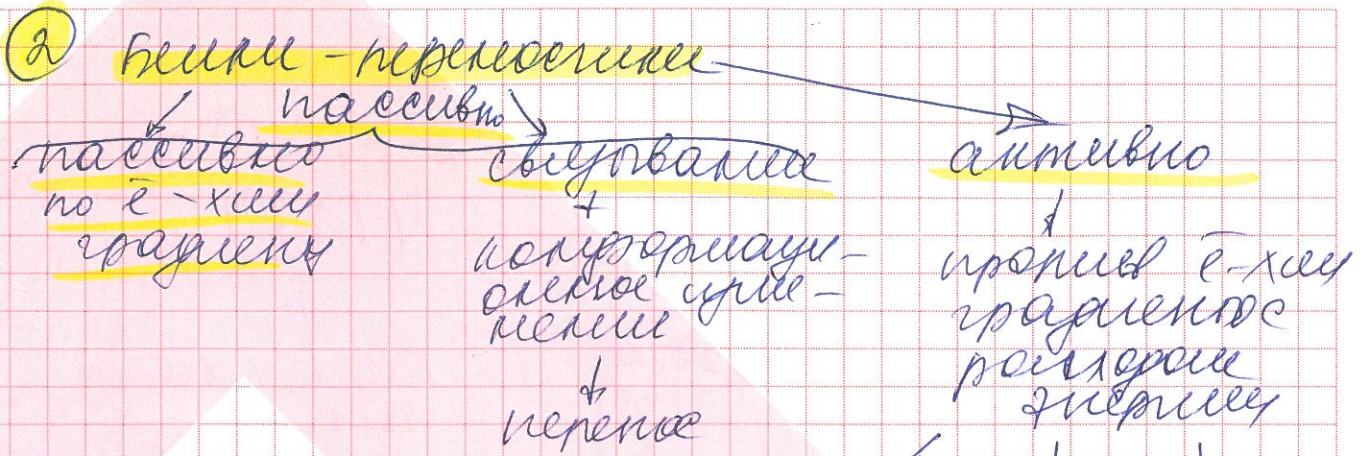 2 Белки - переносчики
пассивно
пассивно
по ē-хим
градиенту
связывание
конформаци-
онное изме-
нение
перенос
активно
против ē-хим
градиента с
расходом
энергии